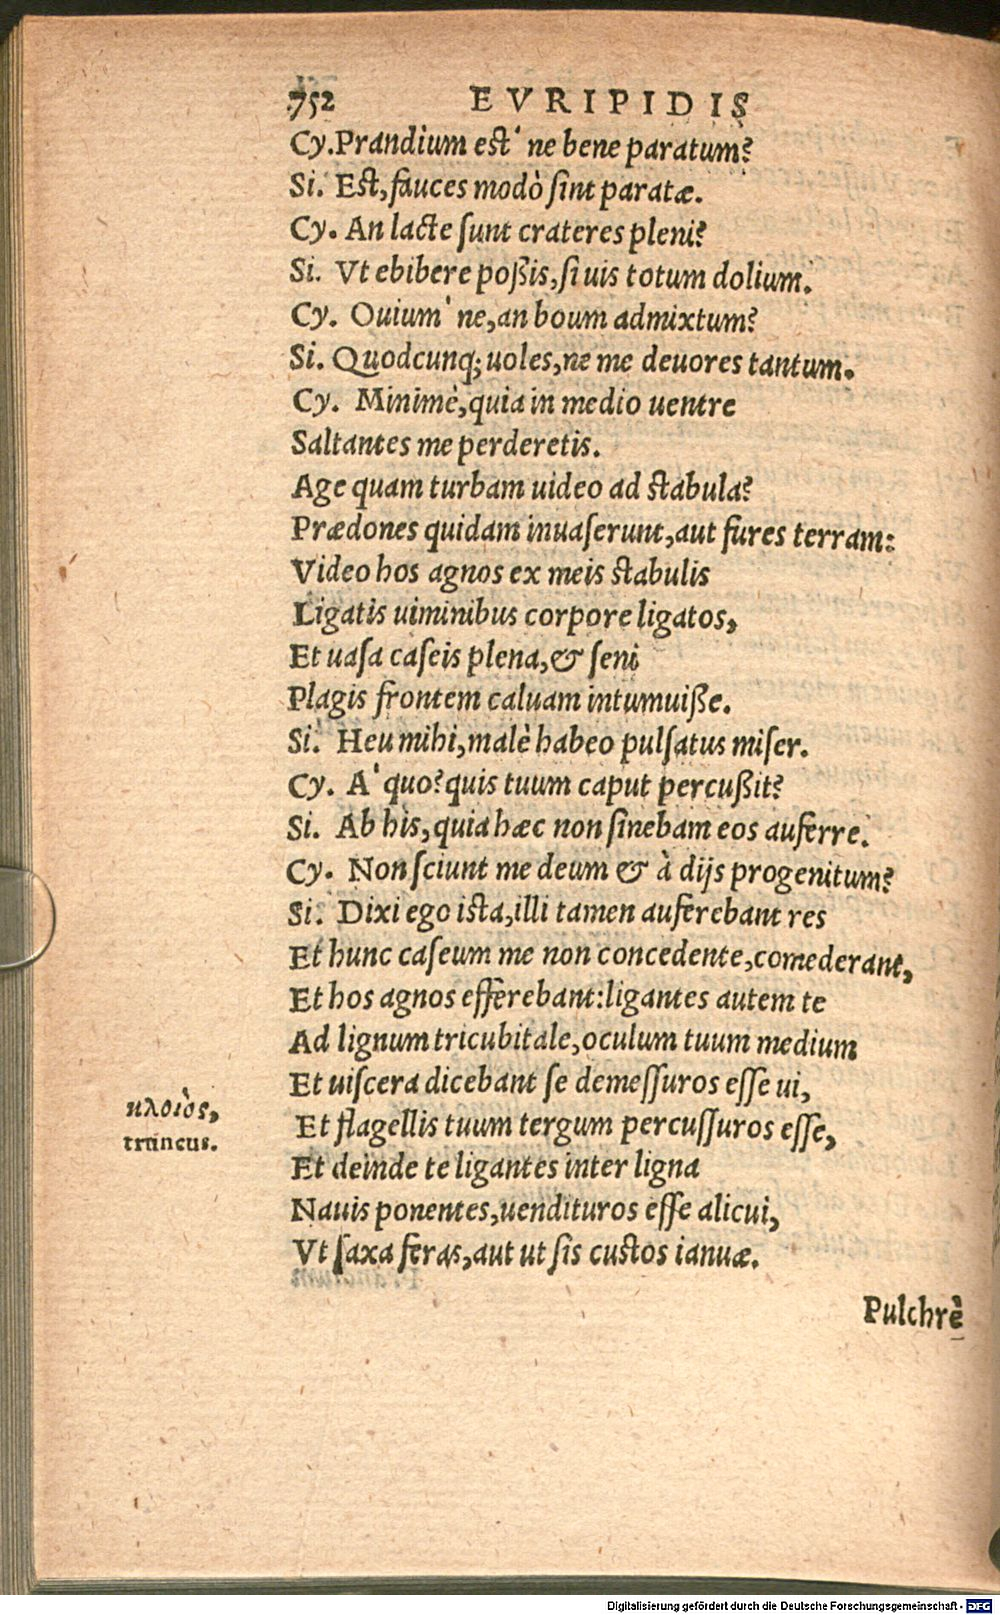 752 EVRIPIDIS
Cy. Prandium est' ne bene paratum?
Si. Est, fauces modò ſint paratæ.
Cy. An lacte ſunt crateres pleni?
Si. Vt ebibere poßis, ſi uis totum dolium.
Cy. Ouium' ne, an boum admixtum?
Si. Quodcunq; uoles, ne me deuores tantum.
Cy. Minimè, quia in medio uentre
Saltantes me perderetis.
Age quam turbam uideo ad stabula?
Prædones quidam inuaſerunt, aut fures terram:
Video hos agnos ex meis stabulis
Ligatis uiminibus corpore ligatos,
Et uaſa caſeis plena, & ſeni
Plagis frontem caluam intumuiße.
Si. Heu mihi, malè habeo pulſatus miſer.
Cy. A' quo? quis tuum caput percußit?
Si. Ab his, quia hæc non ſinebam eos auferre.
Cy. Non ſciunt me deum & à dijs progenitum?
Si. Dixi ego ista, illi tamen auferebant res
Et hunc caſeum me non concedente, comederant,
Et hos agnos efferebant: ligantes autem te
Ad lignum tricubitale, oculum tuum medium
Et uiſcera dicebant ſe demeſſuros eſſe ui,
κλοιὸς,
truncus.
Et flagellis tuum tergum percuſſuros eſſe,
Et deinde te ligantes inter ligna
Nauis ponentes, uendituros eſſe alicui,
Vt ſaxa feras, aut ut ſis custos ianuæ.
Pulchrè
Digitalisierung gefördert durch die Deutsche Forschungsgemeinschaft - DFG